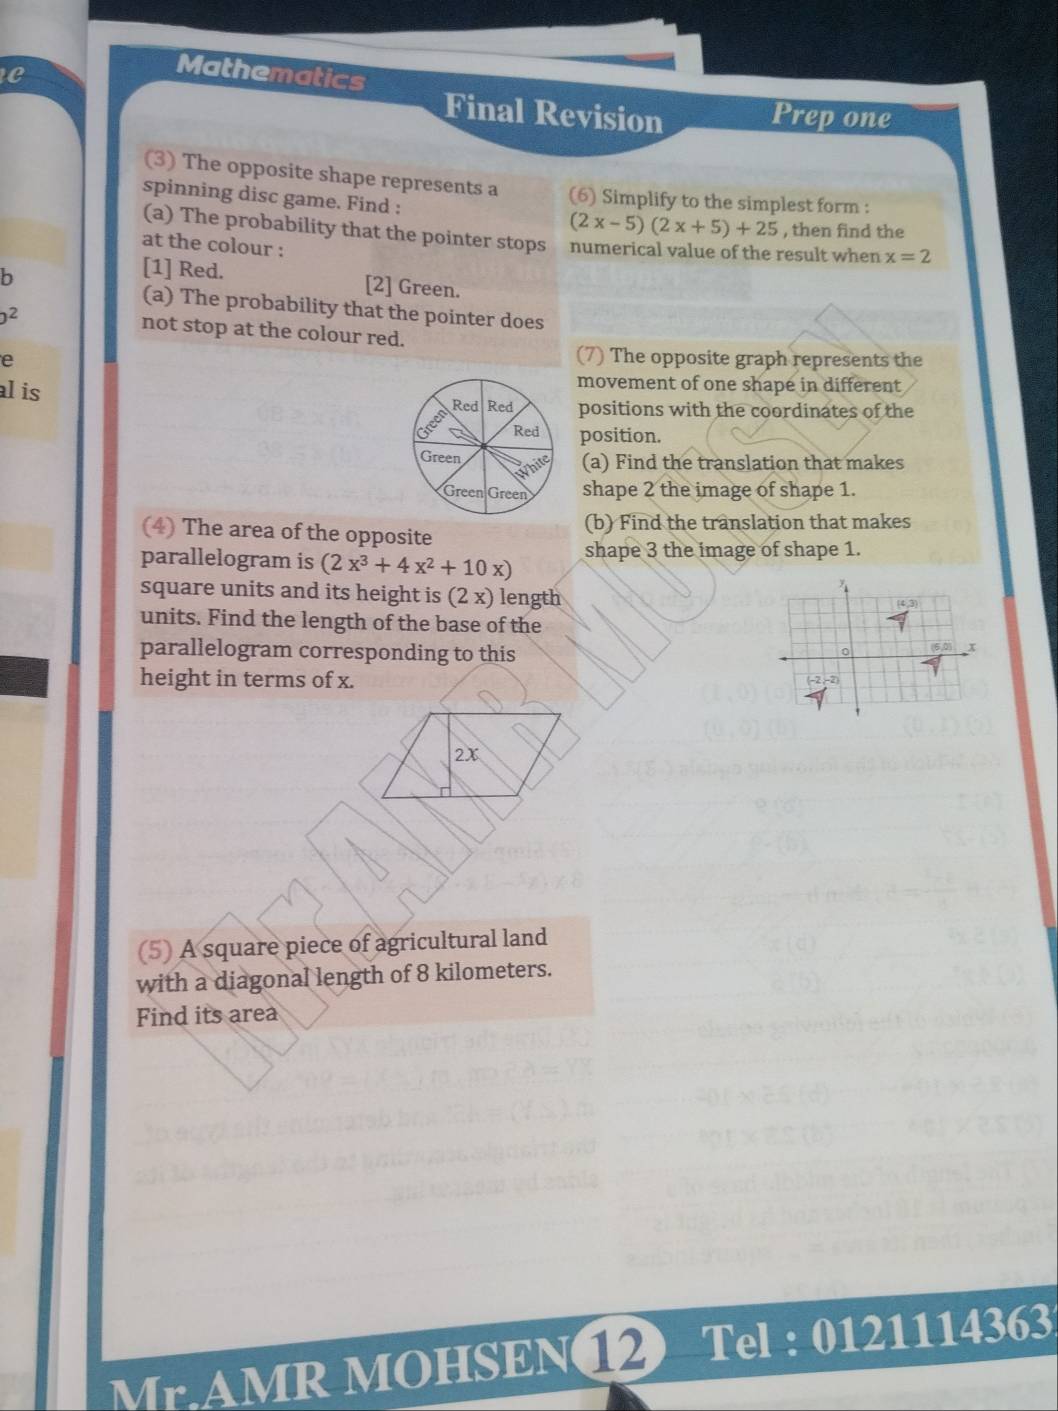 ge
b
b²
e
al is
Mathematics
Final Revision
Prep one
(3) The opposite shape represents a
spinning disc game. Find :
(a) The probability that the pointer stops
at the colour :
[1] Red.
[2] Green.
(a) The probability that the pointer does
not stop at the colour red.
Red Red
Green
Red
Green
White
Green Green
(4) The area of the opposite
parallelogram is (2 x³ + 4 x² + 10 x)
square units and its height is (2 x) length
units. Find the length of the base of the
parallelogram corresponding to this
height in terms of x.
2X
(5) A square piece of agricultural land
with a diagonal length of 8 kilometers.
Find its area
(6) Simplify to the simplest form :
(2 x – 5) (2 x + 5) + 25 , then find the
numerical value of the result when x = 2
(7) The opposite graph represents the
movement of one shape in different
positions with the coordinates of the
position.
(a) Find the translation that makes
shape 2 the image of shape 1.
(b) Find the translation that makes
shape 3 the image of shape 1.
y
(4,3)
O
x
(-2,-2)
Mr.AMR MOHSEN
Mr.AMR MOHSEN
12
Tel : 0121114363